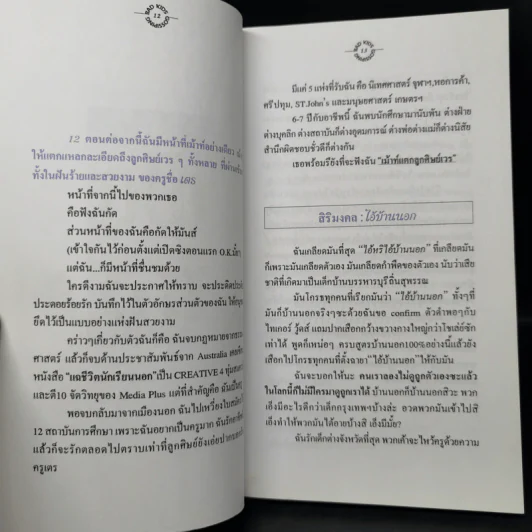 BAD KIDS
12
12 ตอนต่อจากนี้ฉันมีหน้าที่เม้าท์อย่างเดียว
ให้แตกแหลกละเอียดถึงลูกศิษย์เวร ๆ ทั้งหลาย ที่ผ่าน
ทั้งในฝันร้ายและสวยงาม ของครูชื่อ เดร
หน้าที่จากนี้ไปของพวกเธอ
คือฟังฉันกัด
ส่วนหน้าที่ของฉันคือกัดให้มันส์
(เข้าใจกันไว้ก่อนตั้งแต่เปิดซิงตอนแรก O.K.มั้ย
แต่ฉัน...ก็มีหน้าที่ชื่นชมด้วย
ใครดีงามฉันจะประกาศให้ทราบ จะประดิด
ประดอยร้อยรัก บันทึกไว้ในตัวอักษรส่วนตัวของฉัน ให้
ยึดไว้เป็นแบบอย่างแห่งฝันสวยงาม
คร่าวๆเกี่ยวกับตัวฉันก็คือ ฉันจบกฎหมายจาก
ศาสตร์ แล้วก็จบด้านประชาสัมพันธ์จาก Australia
หนังสือ "แฉชีวิตนักเรียนนอก"เป็น CREATIVE
และดี10 จัดวิทยุของ Media Plus แต่ที่สำคัญคือ
พอจบกลับมาจากเมืองนอก ฉันไปเหวี่ยงใบสมัคร
12 สถาบันการศึกษา เพราะฉันอยากเป็นครูมาก
แล้วก็จะรักตลอดไปตราบเท่าที่ลูกศิษย์ยัง
ครูเดร
BAD KIDS
13
มีแค่ 5 แห่งที่รับฉัน คือ นิเทศศาสตร์ จุฬาฯ,หอการค้า,
ศรีปทุม, ST.John's และมนุษยศาสตร์ เกษตรฯ
6-7 ปีกับอาชีพนี้ ฉันพบนักศึกษามานับพัน ต่างฝ่าย
ต่างบุคลิก ต่างสถาบันก็ต่างอุดมการณ์ ต่างพ่อต่างแม่ก็ต่างนิสัย
สำนึกผิดชอบชั่วดีก็ต่างกัน
เธอพร้อมรึยังที่จะฟังฉัน "เม้าท์แตกลูกศิษย์เวร"
สิริมงคล : ไอ้บ้านนอก
ฉันเกลียดมันที่สุด "ไอ้หรือไอ้บ้านนอก" ที่เกลียดมัน
ก็เพราะมันเกลียดตัวเอง มันเกลียดกำพืดของตัวเอง นับว่าเสีย
ชาติที่เกิดมาเป็นเด็กบ้านบรรหารบุรีถิ่นสุพรรณ
มันโกรธทุกคนที่เรียกมันว่า "ไอ้บ้านนอก" ทั้งๆที่
มันก็บ้านนอกจริงๆซะด้วยฉันขอ confirm ตัวดำพอๆกับ
ไทเกอร์ วู้ดส์ แถมปากเสือกกว้างขวางกางใหญ่กว่าโซเล่ย์ซัก
เท่าได้ พูดก็เหน่อๆ ครบสูตรบ้านนอก100%อย่างนี้แล้วยัง
เสือกไปโกรธทุกคนที่ตั้งฉายา "ไอ้บ้านนอก" ให้กับมัน
ฉันจะบอกให้นะ คนเราลองไม่ดูถูกตัวเองซะแล้ว
ในโลกนี้ก็ไม่มีใครมาดูถูกเราได้ บ้านนอกก็บ้านนอกสิวะ พวก
เอ็งมีอะไรดีกว่าเด็กกรุงเทพฯบ้างล่ะ อวดพวกมันเข้าไปสิ
เอ็งทำให้พวกมันได้อายบ้างสิ เอ็งมีมั้ย?
ฉันรักเด็กต่างจังหวัดที่สุด พวกเค้าจะไหว้ครูด้วยความ